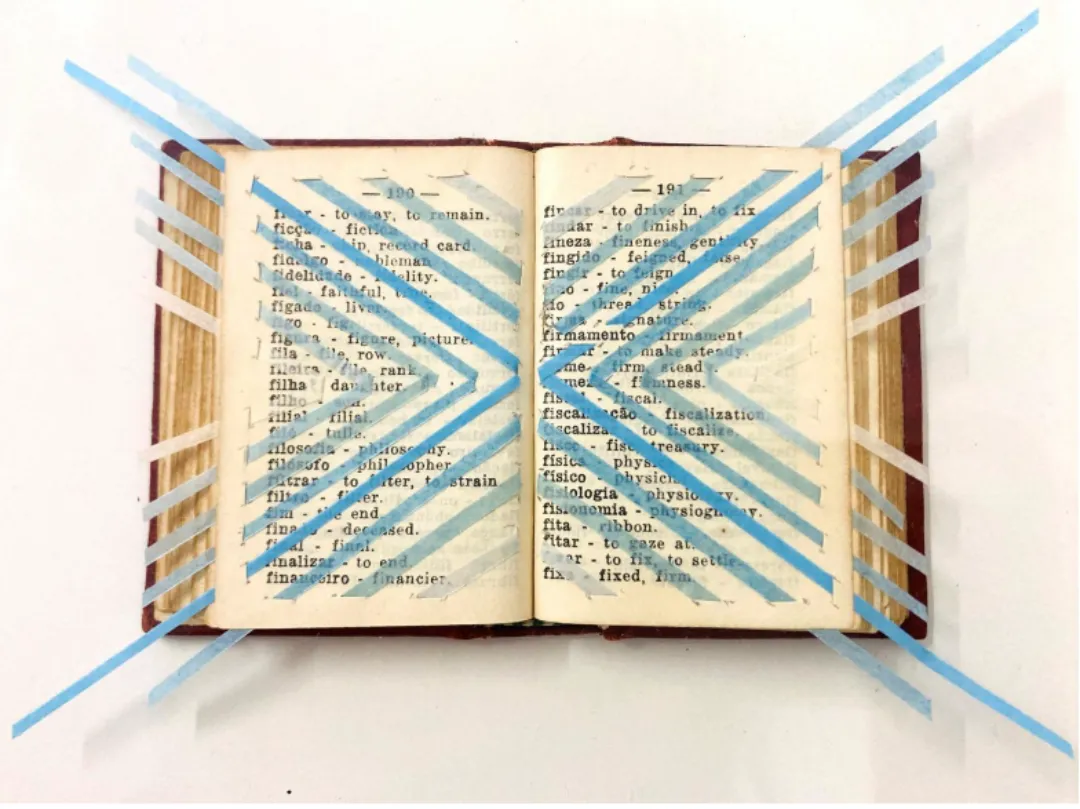 — 190 —
ficar - to stay, to remain.
ficção - fiction.
ficha - chip, record card.
fidalgo - nobleman
fidelidade - fidelity.
fiel - faithful, true.
fígado - liver.
figo - fig.
figura - figure, picture.
fila - file, row.
fileira - file, rank.
filha - daughter.
filho - son.
filial - filial.
filó - tulle.
filosofia - philosophy.
filósofo - philosopher
filtrar - to filter, to strain
filtro - filter.
fim - the end.
finado - deceased.
final - final.
finalizar - to end.
financeiro - financier.
— 191 —
fincar - to drive in, to fix
findar - to finish.
fineza - fineness, gentility.
fingido - feigned, false.
fingir - to feign
fino - fine, nice.
fio - thread, string.
firma - signature.
firmamento - firmament.
firmar - to make steady.
firme - firm, steady.
firmeza - firmness.
fiscal - fiscal.
fiscalização - fiscalization
fiscalizar - to fiscalize.
fisco - fisc, treasury.
física - physics
físico - physician
fisiologia - physiology.
fisionomia - physiognomy.
fita - ribbon.
fitar - to gaze at.
fixar - to fix, to settle.
fixo - fixed, firm.